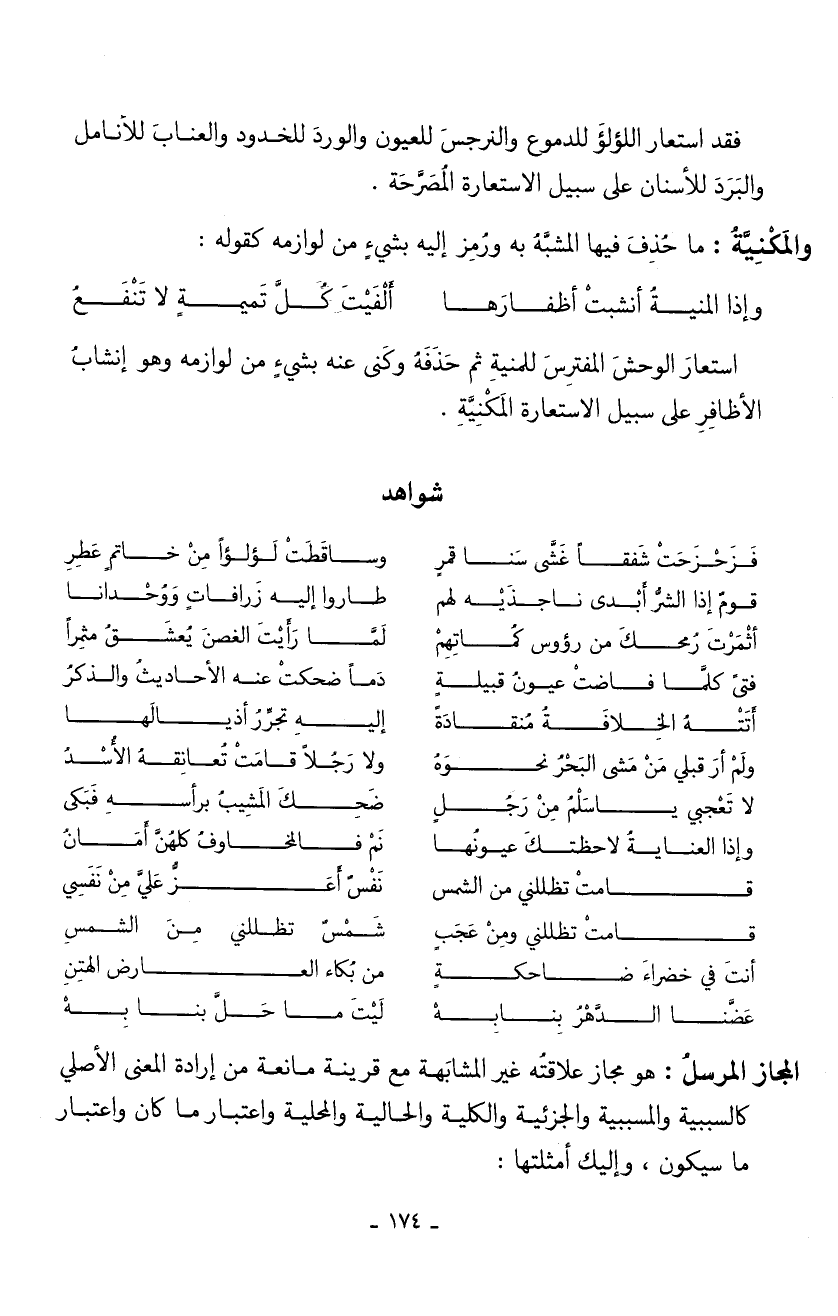 فقد استعار اللؤلؤَ للدموع والنرجسَ للعيون والوردَ للخدود والعنابَ للأنامل
والبَرَدَ للأسنان على سبيل الاستعارة المُصَرَّحَة .
والمَكْنِيَّةُ : ما حُذِفَ فيها المشبَّهُ به ورُمِز إليه بشيءٍ من لوازمه كقوله :
وإذا المنيةُ أنشبتْ أظفارَها أَلْفَيْتَ كُلَّ تَميةٍ لا تَنْفَعُ
استعارَ الوحشَ المفترسَ للمنيةِ ثم حَذَفَهُ وكَنى عنه بشيءٍ من لوازمه وهو إنشابُ
الأظافِرِ على سبيل الاستعارة المَكْنِيَّةِ .
شواهد
فَزَحْزَحَتْ شَفقاً غَشَّى سَنا قمرٍ وساقَطَتْ لَؤلؤاً مِنْ خاتمٍ عَطِرِ
قومٌ إذا الشرُّ أَبْدى ناجذَيْه لهم طاروا إليه زَرافاتٍ وَوُحْدانا
أثْمَرْتَ رُمحكَ من رؤوس كُماتِهِمْ لَمَّا رَأَيْتَ الغصنَ يُعشَقُ مثمراً
فتىً كلمَّا فاضتْ عيونُ قبيلةٍ دَماً ضحكتْ عنه الأحاديثُ والذكرُ
أَتَتْهُ الخلافةُ مُنقادَةً إليهِ تجرِّرُ أذيالَها
ولَمْ أرَ قبلي مَنْ مَشى البَحْرُ نحوَهُ ولا رَجُلاً قامَتْ تُعانقهُ الأُسْدُ
لا تَعْجبي ياسَلْمُ مِنْ رَجُلٍ ضَحِكَ المَشيبُ برأسهِ فَبَكى
وإذا العنايةُ لاحظتكَ عيونُها نَمْ فالمخاوفُ كلهُنَّ أَمَانُ
قامتْ تظللني من الشمس نَفْسٌ أعَزُّ عليَّ مِنْ نَفَسِي
قامتْ تظللني ومِنْ عَجَبٍ شَمْسٌ تظللني مِنَ الشمسِ
أنتَ في خضراءَ ضاحكةٍ من بُكاء العارض الهَتِنِ
عَضَّنا الدَّهْرُ بِنابِهْ لَيْتَ ما حَلَّ بنا بِهْ
المجاز المرسلُ : هو مجاز علاقتُه غير المشابَهة مع قرينة مانعة من إرادة المعنى الأصلي
كالسببية والمسببية والجزئية والكلية والحالية والمحلية واعتبار ما كان واعتبار
ما سيكون ، وإليك أمثلتها :
- ١٧٤ -